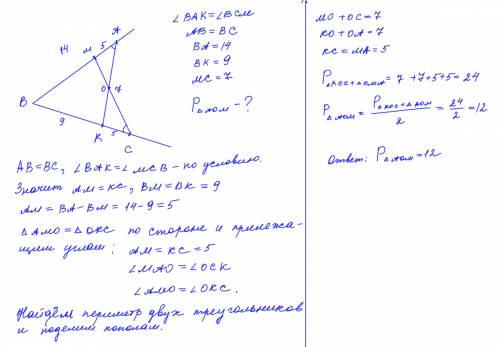 14
М
5
А
О
7
В
9
К
5
С
∠BAK=∠BCM
AB=BC
BA=14
BK=9
MC=7
P△AOM-?
AB=BC, ∠BAK=∠MCB-по условию.
Значит AM=KC, BM=BK=9
AM=BA-BM=14-9=5
△AMO=△OKC по стороне и прилежа-
щим углам: AM=KC=5
∠MAO=∠OCK
∠AMO=∠OKC.
Найдём периметр двух треугольников
и поделим пополам.
MO+OC=7
KO+OA=7
KC=MA=5
P△KOC+△OMA=7+7+5+5=24
P△AOM=P△KOC+△AOM/2=24/2=12
ответ: P△AOM=12